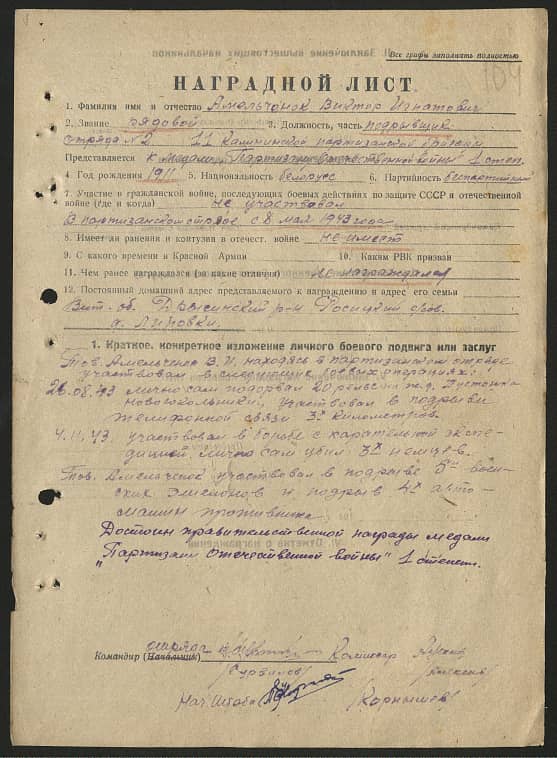 Все графы заполнять полностью
164
НАГРАДНОЙ ЛИСТ
1. Фамилия имя и отчество Амельчонок Виктор Игнатович
2. Звание рядовой 3. Должность, часть подрывщик
отряда №2 11 Калининской партизанской бригады
Представляется к медали "Партизан Отечественной войны" 1 степ.
4. Год рождения 1911 5. Национальность белорус 6. Партийность беспартийный
7. Участие в гражданской войне, последующих боевых действиях по защите СССР и отечественной
войне (где и когда) не участвовал
В партизанском отряде с 8 мая 1943 года
8. Имеет ли ранения и контузии в отечест. войне не имеет
9. С какого времени в Красной Армии 10. Каким РВК призван
11. Чем ранее награждался (за какие отличия) не награждался
12. Постоянный домашний адрес представляемого к награждению и адрес его семьи
Вит. об. Дрысинский р-н Росицкий с/сов.
д. Липовки.
1. Краткое, конкретное изложение личного боевого подвига или заслуг
Тов. Амельченок В.И. находясь в партизанском отряде
участвовал в следующих боевых операциях:
26.08.43 лично сам подорвал 20 рельс на ж.д. Пустошка
Новосокольники, участвовал в подрыве
телефонной связи 3х километров.
4.11.43. участвовал в борьбе с карательной экспе-
дицией. Лично сам убил 3х немцев.
Тов. Амельченок участвовал в подрыве 5ти воин-
ских эшелонов и подрыв 4х авто-
машин противника
Достоин правительственной награды медали
"Партизан Отечественной войны" 1 степени.
Командир (Начальник) Комиссар
Нач. Штаба (Корнышев)